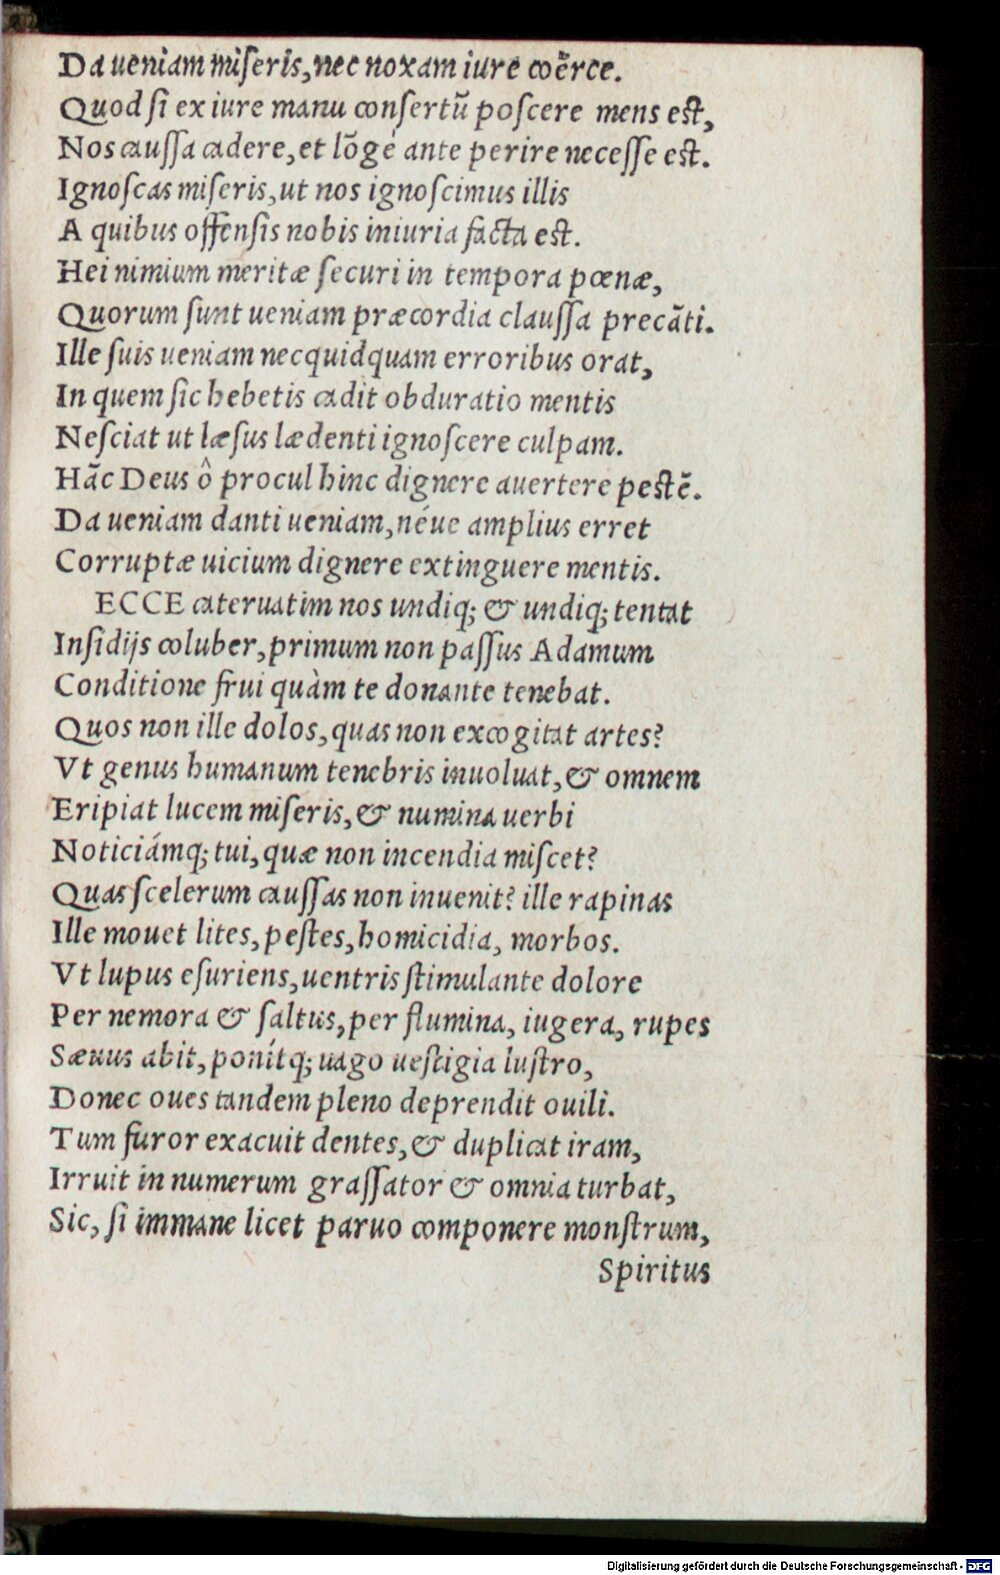 Da ueniam miſeris, nec noxam iure coërce.
Quod ſi ex iure manu conſertũ poſcere mens eſt,
Nos cauſſa cadere, et lõgè ante perire neceſſe eſt.
Ignoſcas miſeris, ut nos ignoſcimus illis
A quibus offenſis nobis iniuria facta eſt.
Hei nimium meritæ ſecuri in tempora pœnæ,
Quorum ſunt ueniam præcordia clauſſa precãti.
Ille ſuis ueniam necquidquam erroribus orat,
In quem ſic hebetis cadit obduratio mentis
Neſciat ut læſus lædenti ignoſcere culpam.
Hãc Deus ô procul hinc dignere auertere peſtẽ.
Da ueniam danti ueniam, néue amplius erret
Corruptæ uicium dignere extinguere mentis.
ECCE cateruatim nos undiq; & undiq; tentat
Inſidijs coluber, primum non paſſus Adamum
Conditione frui quàm te donante tenebat.
Quos non ille dolos, quas non excogitat artes?
Vt genus humanum tenebris inuoluat, & omnem
Eripiat lucem miſeris, & numina uerbi
Noticiámq; tui, quæ non incendia miſcet?
Quas ſcelerum cauſſas non inuenit? ille rapinas
Ille mouet lites, peſtes, homicidia, morbos.
Vt lupus eſuriens, uentris ſtimulante dolore
Per nemora & ſaltus, per flumina, iugera, rupes
Sæuus abit, ponítq; uago ueſtigia luſtro,
Donec oues tandem pleno deprendit ouili.
Tum furor exacuit dentes, & duplicat iram,
Irruit in numerum graſſator & omnia turbat,
Sic, ſi immane licet paruo componere monſtrum,
Spiritus
Digitalisierung gefördert durch die Deutsche Forschungsgemeinschaft - DFG